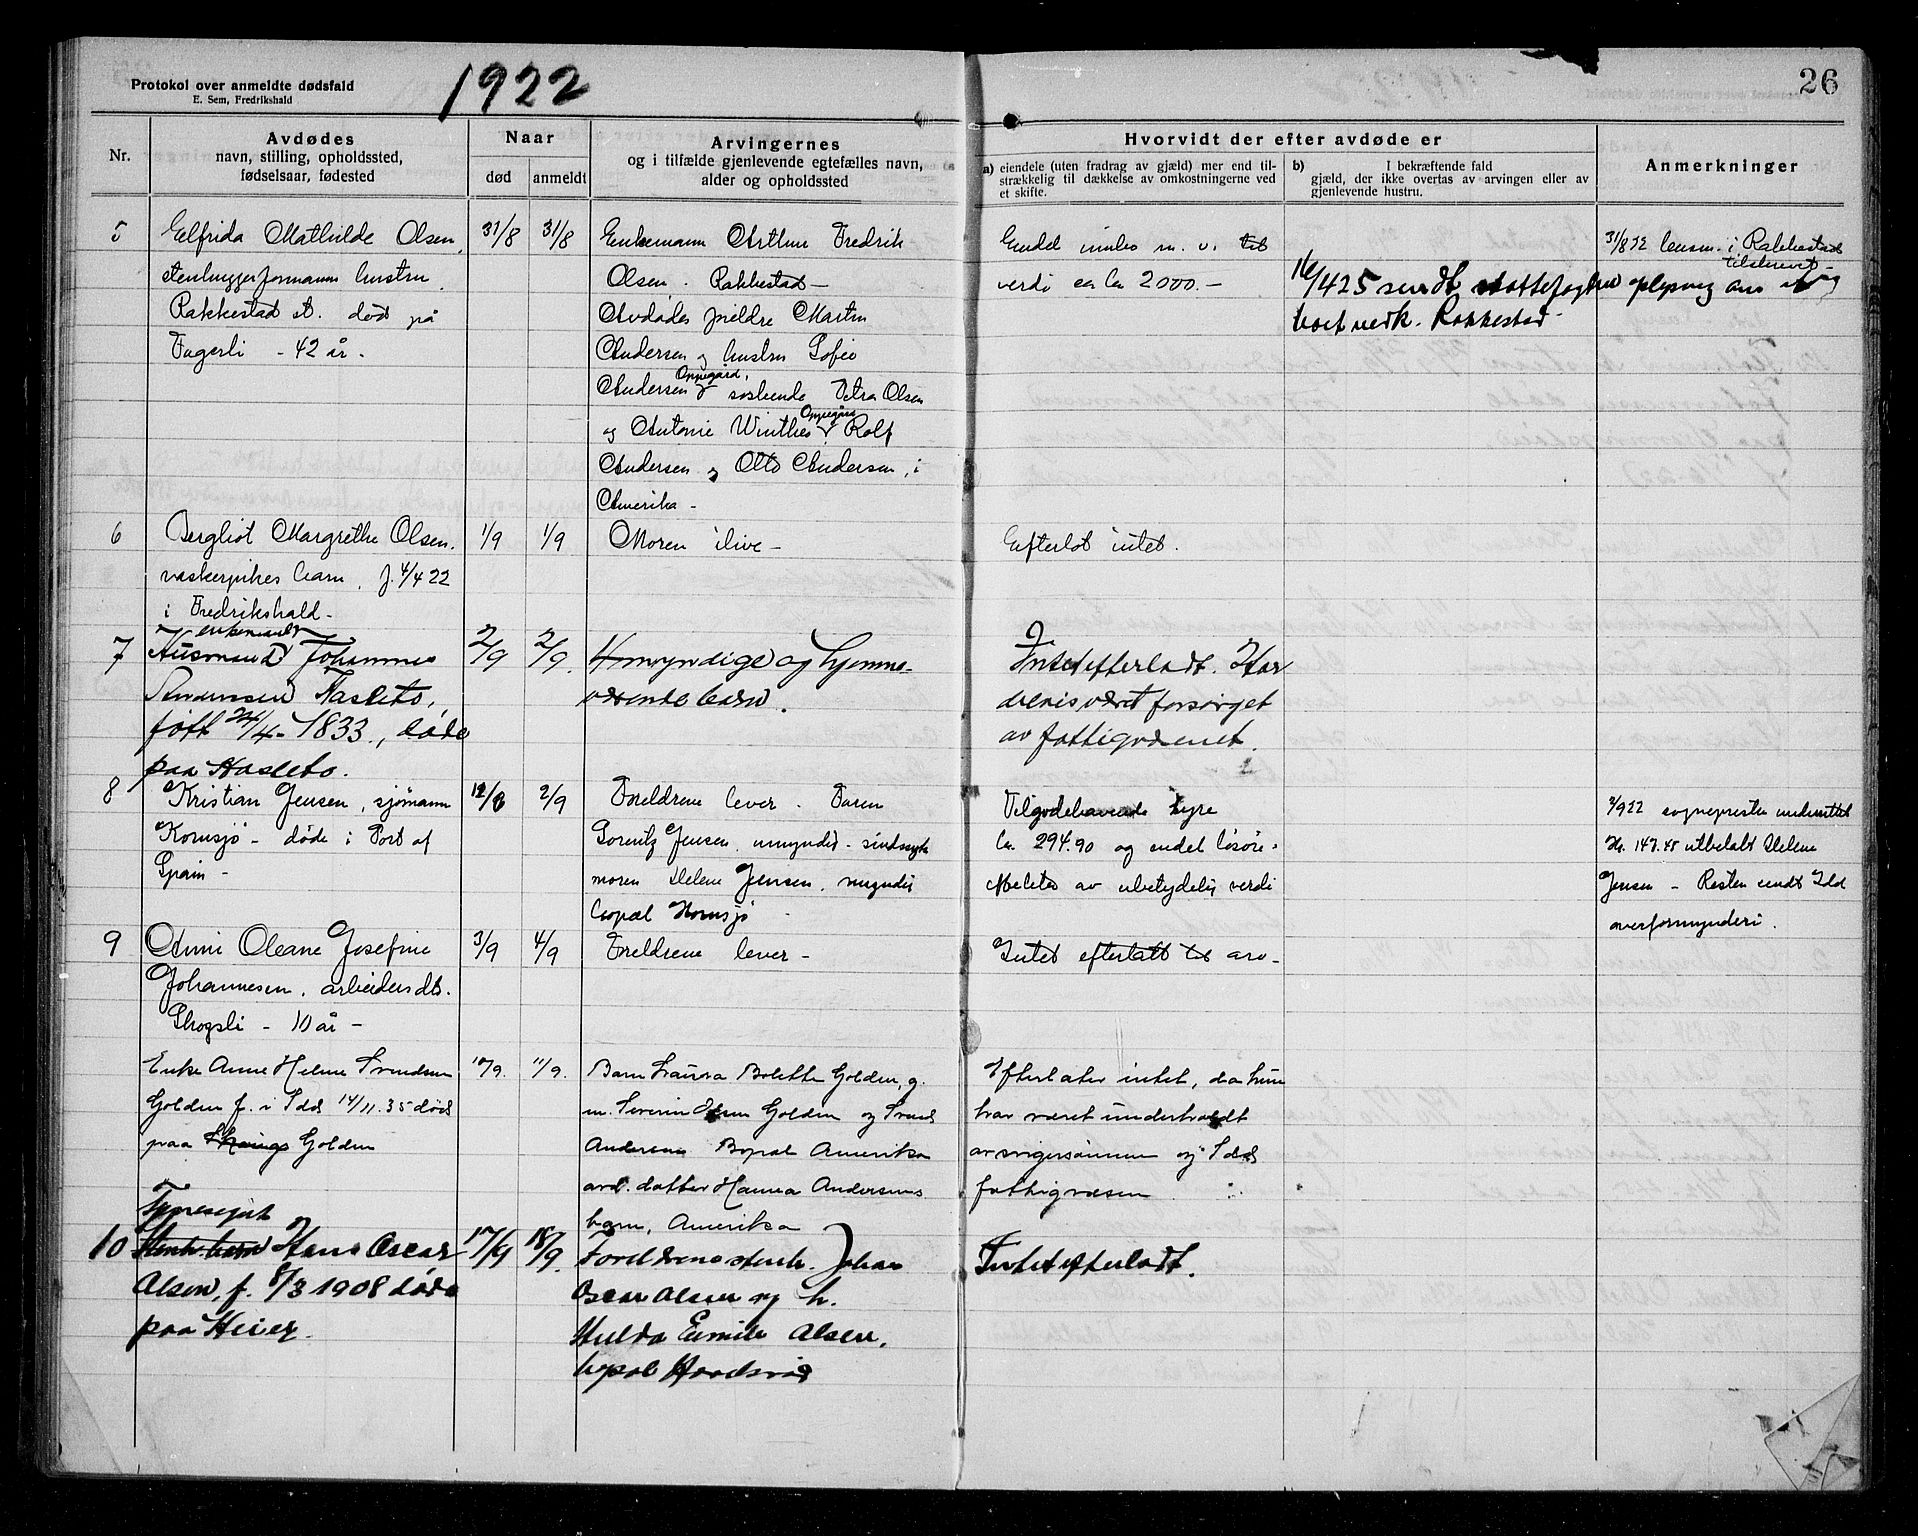 Protokol over anmeldte dødsfald
E. Sem, Fredrikshald
1922
26
Nr.
Avdødes
navn, stilling, opholdssted,
fødselsaar, fødested
Naar
død
anmeldt
Arvingernes
og i tilfælde gjenlevende egtefælles navn,
alder og opholdssted
Hvorvidt der efter avdøde er
a) eiendele (uten fradrag av gjæld) mer end til-
strækkelig til dækkelse av omkostningerne ved
et skifte.
b) I bekræftende fald
gjæld, der ikke overtas av arvingen eller av
gjenlevende hustru.
Anmerkninger
5
Elfrida Mathilde Olsen,
stenhuggerformann hustru,
Rakkestad st. død på
Fagerli - 42 år -
31/8
31/8
Enkemann Arthur Fredrik
Olsen. Rakkestad -
Avdødes foreldre Martin
Andersen og hustru Sofie
Andersen Oppegård, søskende Petra Olsen
og Antonie Winther Oppegård Rolf
Andersen og Otto Andersen, i
Amerika -
Endel innbo m. v. til
verdi ca kr 2000.-
16/4 25 sendt skattefogden oplysning om
boet vedk. Rakkestad
31/8 22 lensm. i Rakkestad
tilskrevet
6
Bergliot Margrethe Olsen.
vaskerpikes barn, f. 4/4 22
i Fredrikshald -
1/9
1/9
Moren ilive -
Efterlot intet.
7
enkemand
Husmand Johannes
Andersen Hasleto,
født 24/4 - 1833, døde
paa Hasleto.
2/9
2/9.
Umyndige og hjemme-
værende barn.
Intet efterladt. Har
delvis været forsørget
av fattigvæsenet.
8
Kristian Jensen, sjømann
Kornsjø - døde i Port of
Spain -
12/8
2/9
Foreldrene lever. Faren
Lorentz Jensen, umyndig - sindssyk
moren Helene Jensen, myndig
bopæl Kornsjø -
Tilgodehavende hyre
kr. 294.90 og endel løsøre -
effekter av ubetydelig verdi
2/9 22 sogneprest underrettet
Kr. 147.45 utbetalt Helene
Jensen - Resten sendt Idd
overformynderi.
9
Anni Oleane Josefine
Johannesen, arbeiders dtr.
Skogsli - 10 år -
3/9
4/9
Foreldrene lever -
Intet efterlatt til arv -
Enke Anne Helene Svendsen
Golden f. i Idd 14/11. 35 død
paa Golden
10/9.
11/9.
Barn Laura Bolette Golden, g.
m. Severin Olsen Golden og Svend
Andersen Bopæl Amerika
avd. datter Hanna Andersens
barn, Amerika
Efterlater intet, da hun
har været underholdt
av svigersønnen og Idds
fattigvæsen
10
Hans Oscar
Olsen, f. 8/3 1908 døde
paa Heier.
17/9
18/9.
Foreldrene Johan
Oscar Olsen og h.
Hulda Emilie Olsen,
bopæl
Intet efterladt.